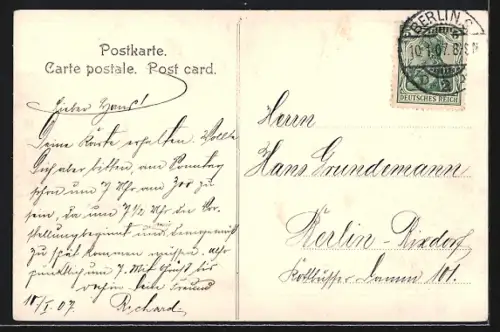 Postkarte.
Carte postale. Post card.
Lieber Hans!
Deine Karte erhalten. Wollte
Dich aber bitten, am Sonntag
schon um 7 Uhr am Zoo zu
sein, da um 7 1/2 Uhr die Vor-
stellung beginnt und wir
zu spät kommen müssen. Also
pünktlich um 7. Mit Gruß bis
dahin Dein Freund
10/I. 07. Richard.
BERLIN S.
10.1.07. 8-9 N
DEUTSCHES REICH
Herrn
Hans Grundemann
Berlin-Rixdorf
Kottbusser Damm 101.